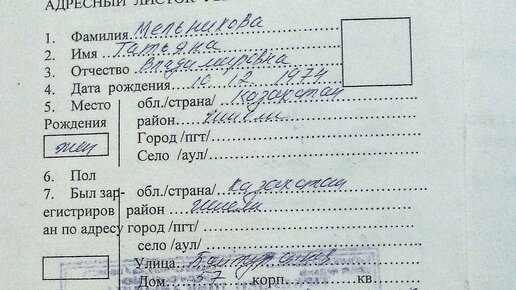 АДРЕСНЫЙ ЛИСТОК
1. Фамилия Мельникова
2. Имя Татьяна
3. Отчество Владимировна
4. Дата рождения 10 12 1974
5. Место обл./страна/ Казахстан
Рождения район
жен Город /пгт/
Село /аул/
6. Пол
7. Был зар- обл./страна/ Казахстан
егистриров район
ан по адресу город /пгт/
село /аул/
Улица
Дом 7 корп. кв